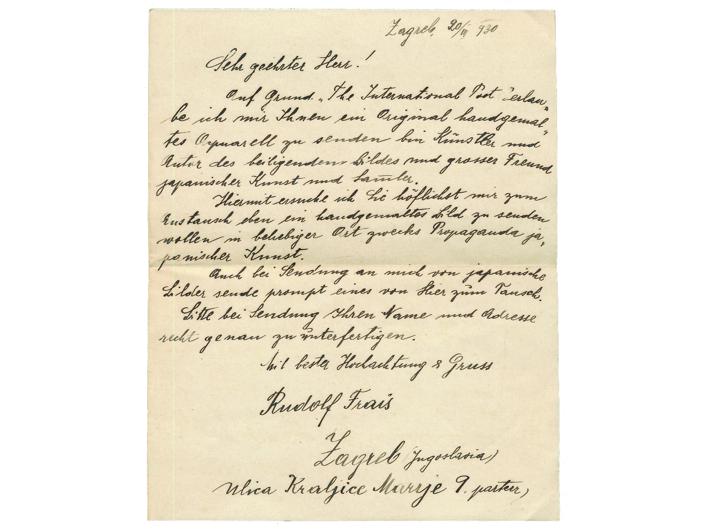 Zagreb, 20/III 930
Sehr geehrter Herr!
Auf Grund „The International Post" erlau„
be ich mir Ihnen ein Original handgemal„
tes Aquarell zu senden bin Künstler und
Autor des beiligenden Bildes und grosser Freund
japanischer Kunst und Samler.
Hiermit ersuche ich Sie höflichst mir zum
Austausch eben ein handgemaltes Bild zu senden
wollen in beliebiger Ort zwecks Propaganda ja„
panischer Kunst.
Auch bei Sendung an mich von japanische
Bilder sende prompt eines von Hier zum Tausch.
Bitte bei Sendung Ihren Name und Adresse
recht genau zu unterfertigen.
Mit bester Hochachtung & Gruss
Rudolf Frais
Zagreb (Jugoslavia)
Ulica Kraljice Marije 9. parterr)